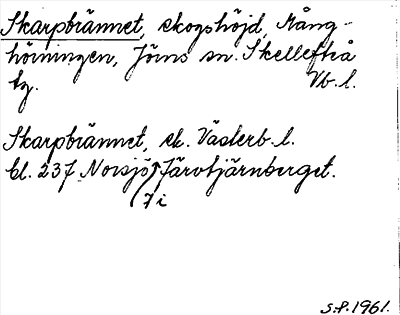 Skarpbrännet, skogshöjd, Mång-
hörningen, Jörns sn. Skellefteå
tg. Vb. l.
Skarpbrännet, sk. Västerb. l.
bl. 237 Norsjö, Järvtjärnberget.
(7 i
S.P. 1961.